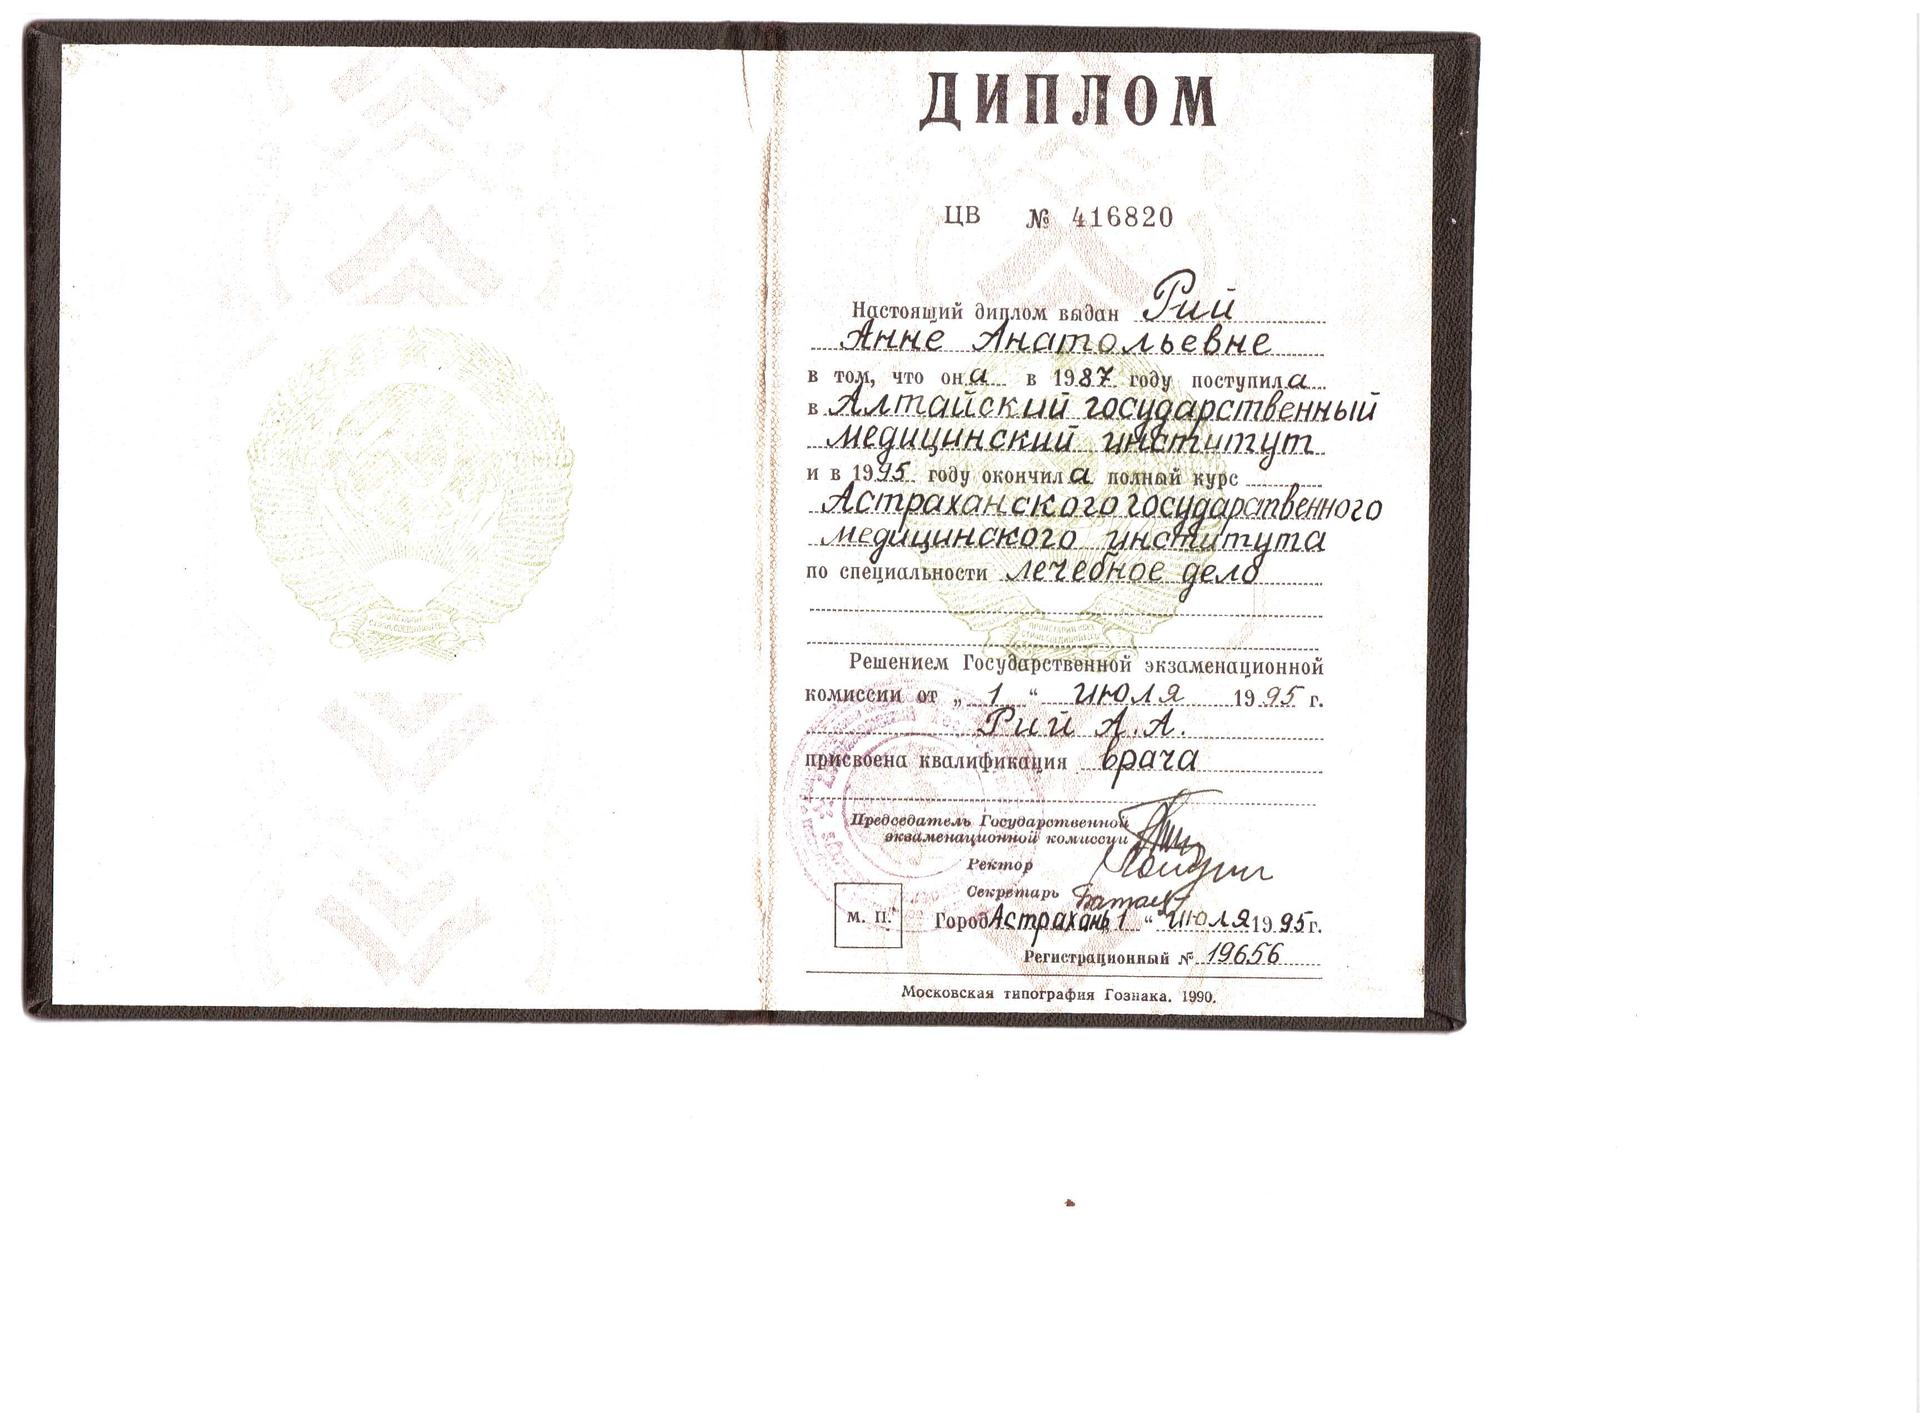 ДИПЛОМ
ЦВ № 416820
Настоящий диплом выдан Рий
Анне Анатольевне
в том, что она в 1987 году поступила
в Алтайский государственный
медицинский институт
и в 1995 году окончила полный курс
Астраханского государственного
медицинского института
по специальности лечебное дело
Решением Государственной экзаменационной
комиссии от „1“ июля 1995 г.
Рий А.А.
присвоена квалификация врача
Председатель Государственной
экзаменационной комиссии
Ректор
Секретарь
М. П. Город Астрахань, 1 “ июля 1995 г.
Регистрационный № 19656
Московская типография Гознака. 1990.